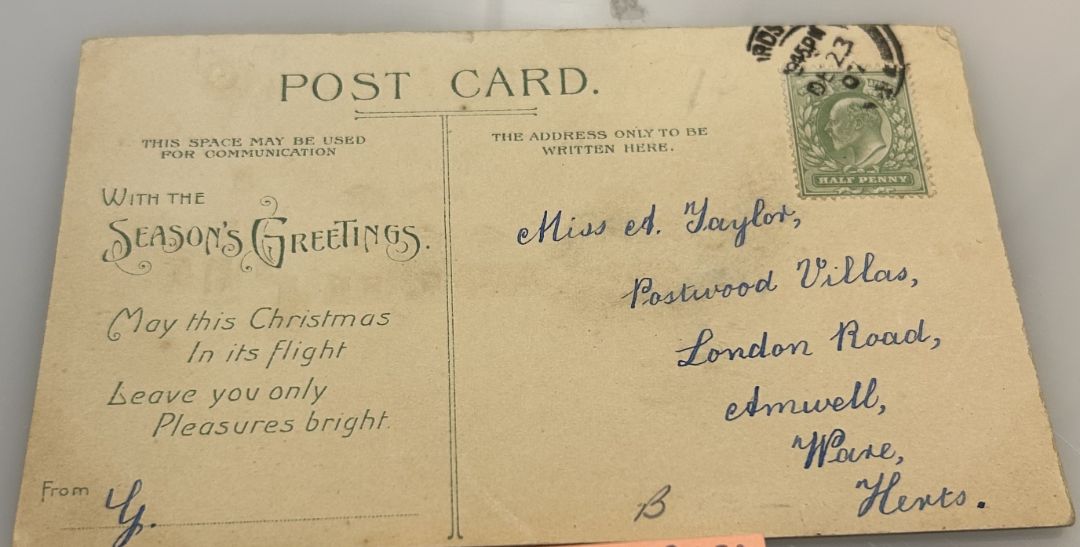 POST CARD.
THIS SPACE MAY BE USED
FOR COMMUNICATION
THE ADDRESS ONLY TO BE
WRITTEN HERE.
WITH THE
SEASON'S GREETINGS.
May this Christmas
In its flight
Leave you only
Pleasures bright.
From
Miss A. Taylor,
Postwood Villas,
London Road,
Amwell,
Ware,
Herts.
B
9.45PM
DE 23
07
HALF PENNY